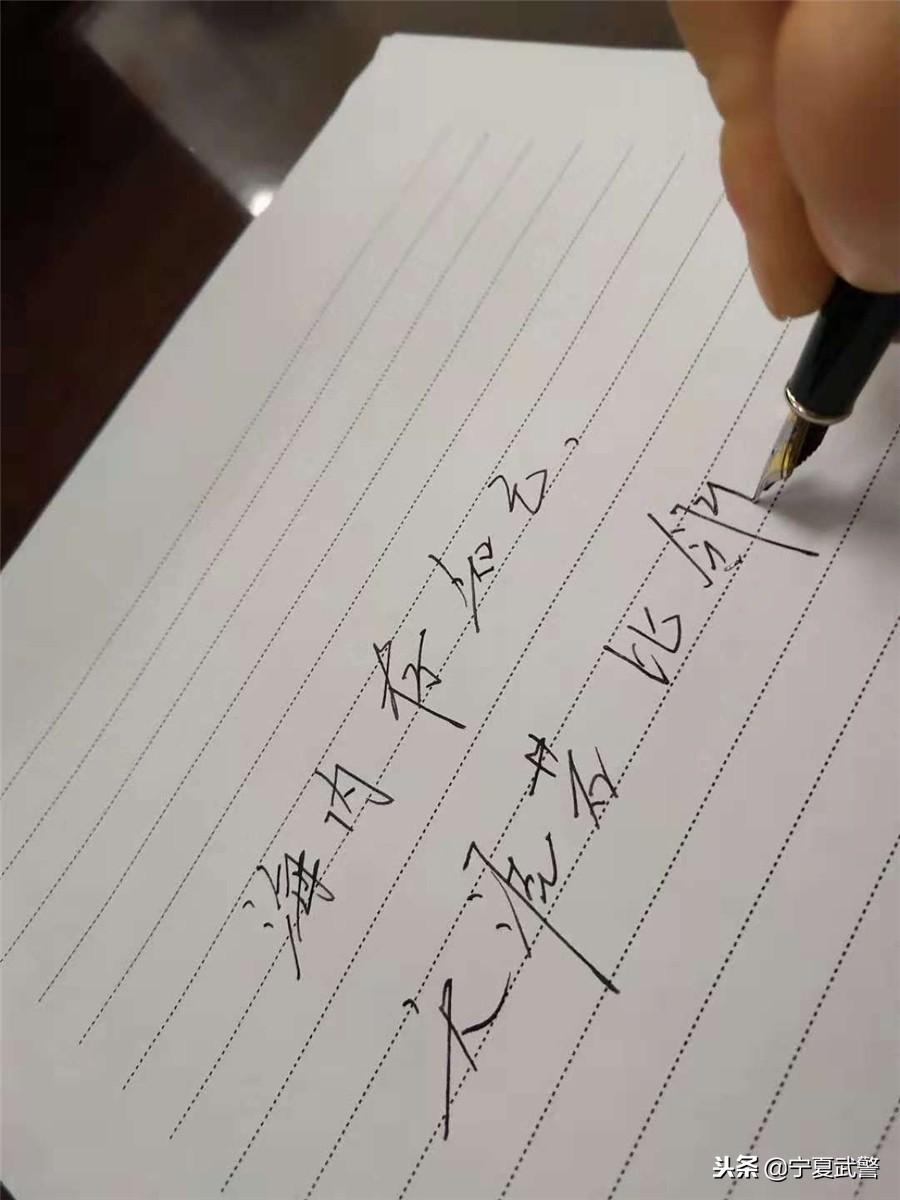 海内存知己,
天涯若比邻
头条 @宁夏武警